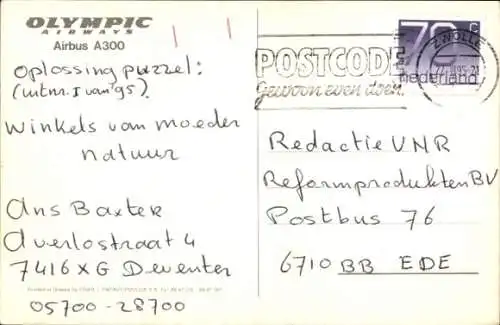 OLYMPIC
AIRWAYS
Airbus A300
Oplossing puzzel:
(intnr. 1 van 95).
Winkels van moeder
natuur
Ans Baxter
Averlostraat 4
7416 XG Deventer
05700-28700
POSTCODE
Gewoon even doen.
70 c
nederland
ZWOLLE
Redactie VNR
Reformprodukten BV
Postbus 76
6710 BB EDE